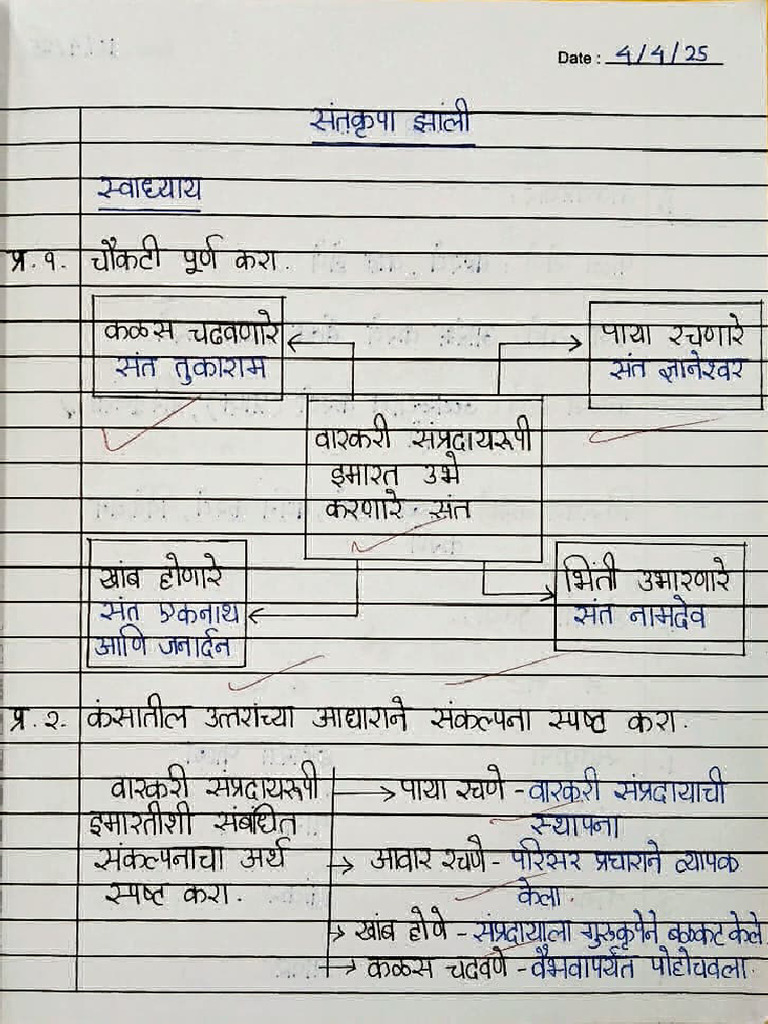 Date : 4/4/25
संतकृपा झाली
स्वाध्याय
प्र. १. चौकटी पूर्ण करा.
कळस चढवणारे
संत तुकाराम
पाया रचणारे
संत ज्ञानेश्वर
वारकरी संप्रदायरूपी
इमारत उभे
करणारे संत
खांब होणारे
संत एकनाथ
आणि जनार्दन
भिंती उभारणारे
संत नामदेव
प्र. २. कंसातील उत्तरांच्या आधाराने संकल्पना स्पष्ट करा.
वारकरी संप्रदायरूपी
इमारतीशी संबंधित
संकल्पनाचा अर्थ
स्पष्ट करा.
पाया रचणे - वारकरी संप्रदायाची
स्थापना
आवार रचणे - परिसर प्रचाराने व्यापक
केला.
खांब होणे - संप्रदायाला गुरुकृपेने बळकट केले.
कळस चढवणे - वैभवापर्यंत पोहोचवला.